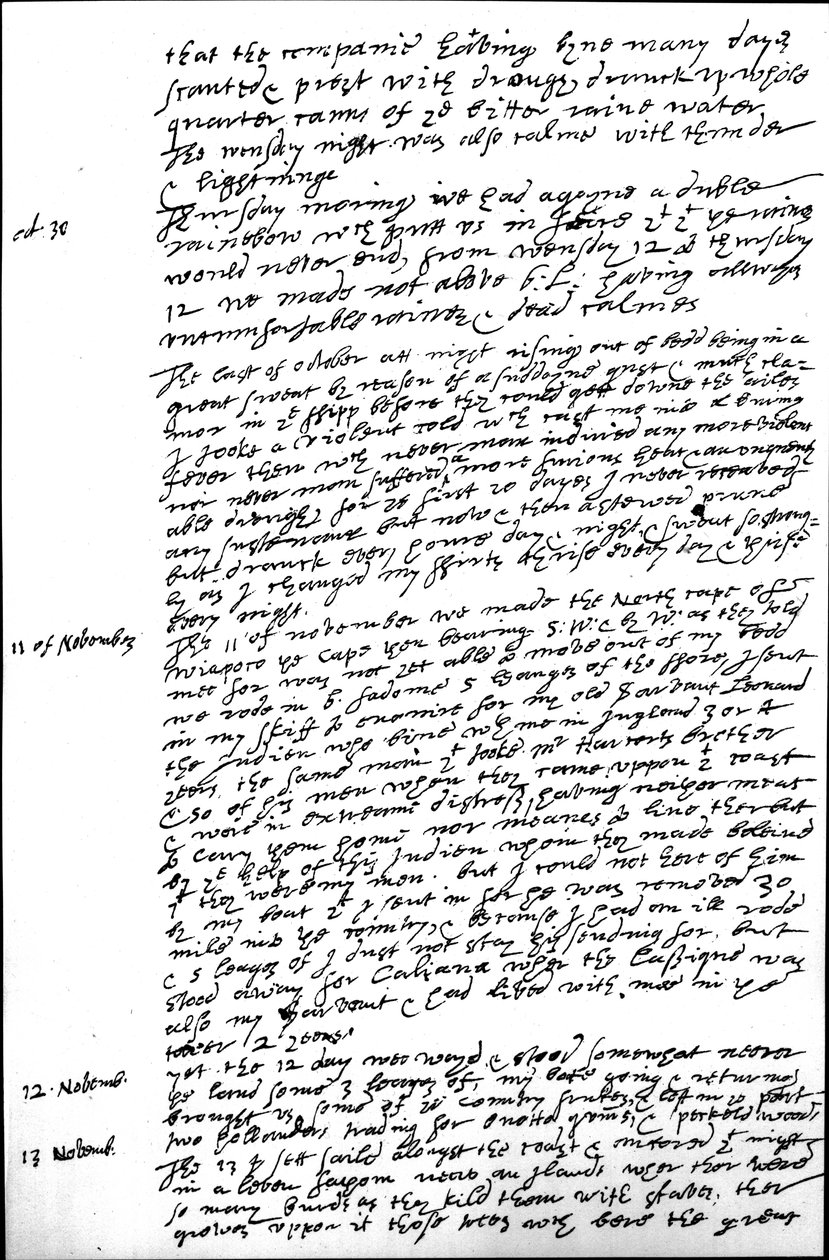 that the companie having byne many days
scanted & prest with drough, dranck up whole
quarter canns of ye bitter raine water
The wensday night was also calme with thunder
& lightninge
oct. 30
Thursday morning we had agayne a duble
rainebow wch putt us in feare yt ye raines
would never end, from wensday 12 to thursday
12 we made not above 6: L: having allwayes
uncumfortable raines & dead calmes
The last of october att night rising out of bedd being in a
great sweat by reason of a suddayne gust & much cla=
mor in ye shipp before they could gett downe the sailes
I tooke a violent cold wch cast me into a burning
fever then wch never man indured any more violent
nor never man suffered a more furious heat & an unquench
able drough, for ye first 20 dayes I never receaved
any sustenance but now & then a stewed prune
but dranck every houre day & night, & sweat so strong=
ly as I changed my shirts thrise every day & thrise
every night.
11 of November
The 11 of november we made the North cape of
Wiapoco ye Cape then bearing S: W: & by W: as they told
mee for I was not yet able to move out of my bedd
we rode in 6. fadome 5 leagues of the shore, I sent
in my skiff to enquire for my old Sarvant Leonard
the Indien who bine wth me in Ingland 3 or 4
yeers, the same man yt tooke mr Harcorts brother
& 50 of his men when they came uppon yt coast
& were in extreame distress, having neither meat
to carry them home nor meanes to live ther but
by ye help of this Indien whom they made beleive
yt they were my men. but I could not here of him
by my boat yt I sent in for he was removed 30
mile into ye countrey, & because I had an ill rode
& 5 leages of I durst not stay his sending for, but
stood away for Caliana wher the Cassique was
also my Sarvant & had lived with mee in ye
tower 2 yeers.
12. Novemb.
yet the 12 day wee wayd & stood somewhat neerer
ye land some 3 leagues of, my bote going & returning
brought us some of ye countrey frutes, & left in ye port
two hollanders trading for onotta gums, & speckeld wood,
13 Novemb.
The 13 I sett saile alongst the coast & ancored yt night
in a leven fadom neere an Ilande wher ther were
so many burds as they kild them with staves, ther
growes uppon it those trees wch bere the great